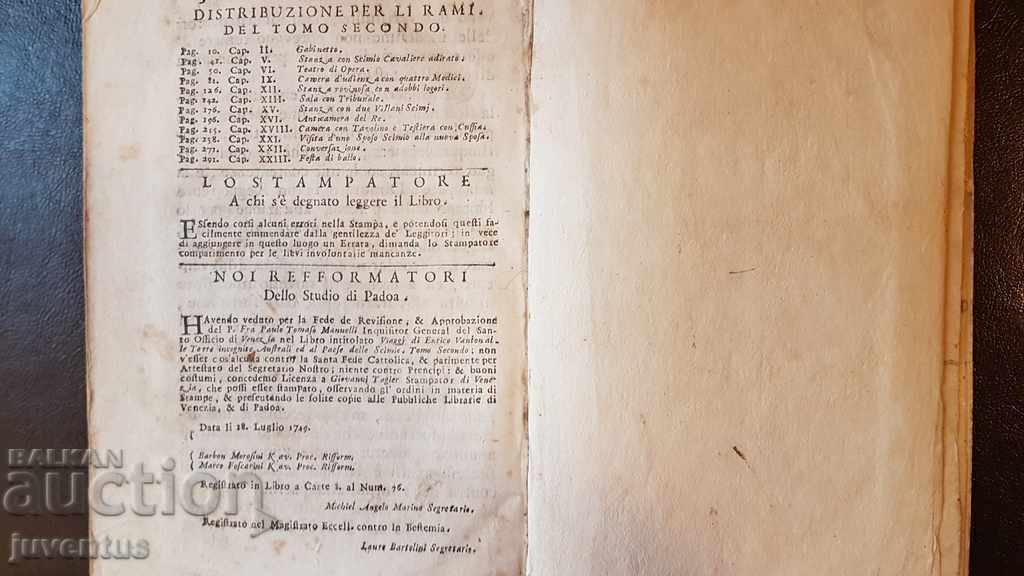 DISTRIBUZIONE PER LI RAMI.
DEL TOMO SECONDO.
Pag. 10. Cap. II. Gabinetto.
Pag. 41. Cap. V. Stanza con Scimio Cavaliere adirato.
Pag. 50. Cap. VI. Teatro di Opera.
Pag. 81. Cap. IX. Camera d'udienza con quattro Medici.
Pag. 126. Cap. XII. Stanza rovinosa con addobbi logori.
Pag. 142. Cap. XIII. Sala con Tribunale.
Pag. 176. Cap. XV. Stanza con due Villani Scimj.
Pag. 196. Cap. XVI. Anticamera del Re.
Pag. 215. Cap. XVIII. Camera con Tavolino e Testiera con Cuffia.
Pag. 258. Cap. XXI. Visita d'uno Sposo Scimio alla nuova Sposa.
Pag. 271. Cap. XXII. Conversazione.
Pag. 291. Cap. XXIII. Festa di ballo.
LO STAMPATORE
A chi s'è degnato leggere il Libro.
ESsendo corsi alcuni errori nella Stampa, e potendosi questi fa-
cilmente emmendare dalla gentilezza de' Leggitori; in vece
di aggiungere in questo luogo un Errata, dimanda lo Stampatore
compatimento per le lievi involontarie mancanze.
NOI REFFORMATORI
Dello Studio di Padoa.
HAvendo veduto per la Fede de Revisione, & Approbazione
del P. Fra Paulo Tomaso Manuelli Inquisitor General del San-
to Officio di Venezia nel Libro intitolato Viaggj di Enrico Vanton al-
le Terre incognite Australi ed al Paese delle Scimie. Tomo Secondo; non
v'esser cos'alcuna contro la Santa Fede Cattolica, & parimente per
Attestato del Segretario Nostro; niente contro Prencipi; & buoni
costumi, concedemo Licenza a Giovanni Tagier Stampator di Vene-
zia, che possi esser stampato, osservando gl' ordini in materia di
Stampe, & presentando le solite copie alle Pubbliche Librarie di
Venezia, & di Padoa.
Data li 28. Luglio 1749.
( Barbon Morosini Kav. Proc. Rifform.
( Marco Foscarini Kav. Proc. Rifform.
Registrato in Libro a Carte 8. al Num. 76.
Michiel Angelo Marino Segretario.
Registrato nel Magistrato Eccell. contro la Bestemia.
Lauro Bartolini Segretario.
BALKAN
auction
juventus